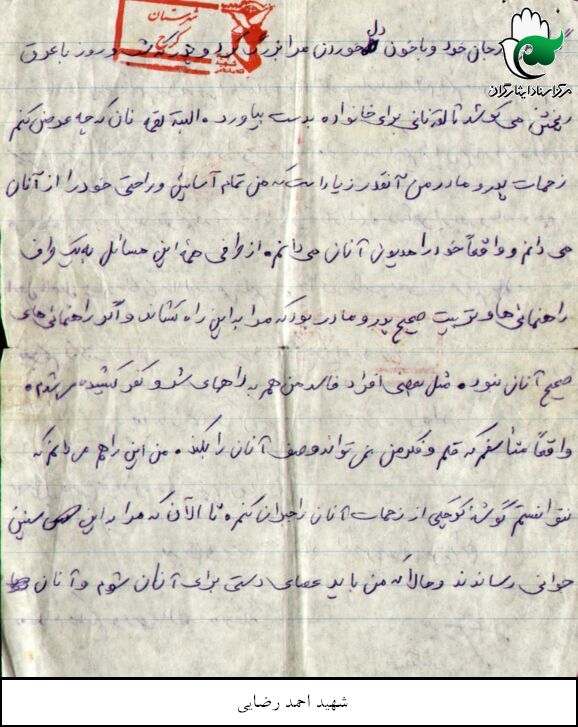 شهرستان
کرج
مرکز اسناد ایثارگران
جان خود و با خون دل خوردن مرا بزرگ کرد و پدر و روز با عرق
ریختن می کوشد تا لقمه نانی برای خانواده بدست بیاورد. البته لقمه نان که چه عرض کنم
زحمات پدر و مادر من آنقدر زیاد است که من تمام آسایش و راحتی خود را از آنان
می دانم و واقعاً خود را مدیون آنان می دانم. از طرفی همه این مسائل به یک طرف
راهنمائی ها و تربیت صحیح پدر و مادر بود که مرا به این راه کشاند و اگر راهنمائی های
صحیح آنان نبود. مثل بعضی افراد فاسد من هم به راههای شر و کفر کشیده می شدم.
واقعاً متأسفم که قلم و فکر من نمی تواند وصف آنان را بکند. من این را هم می دانم که
نتوانستم گوشۀ کوچکی از زحمات آنان را جبران کنم. تا الآن که مرا به این سنین
جوانی رساندند و حالا که من باید عصای دستی برای آنان شوم و آنان
شهید احمد رضایی